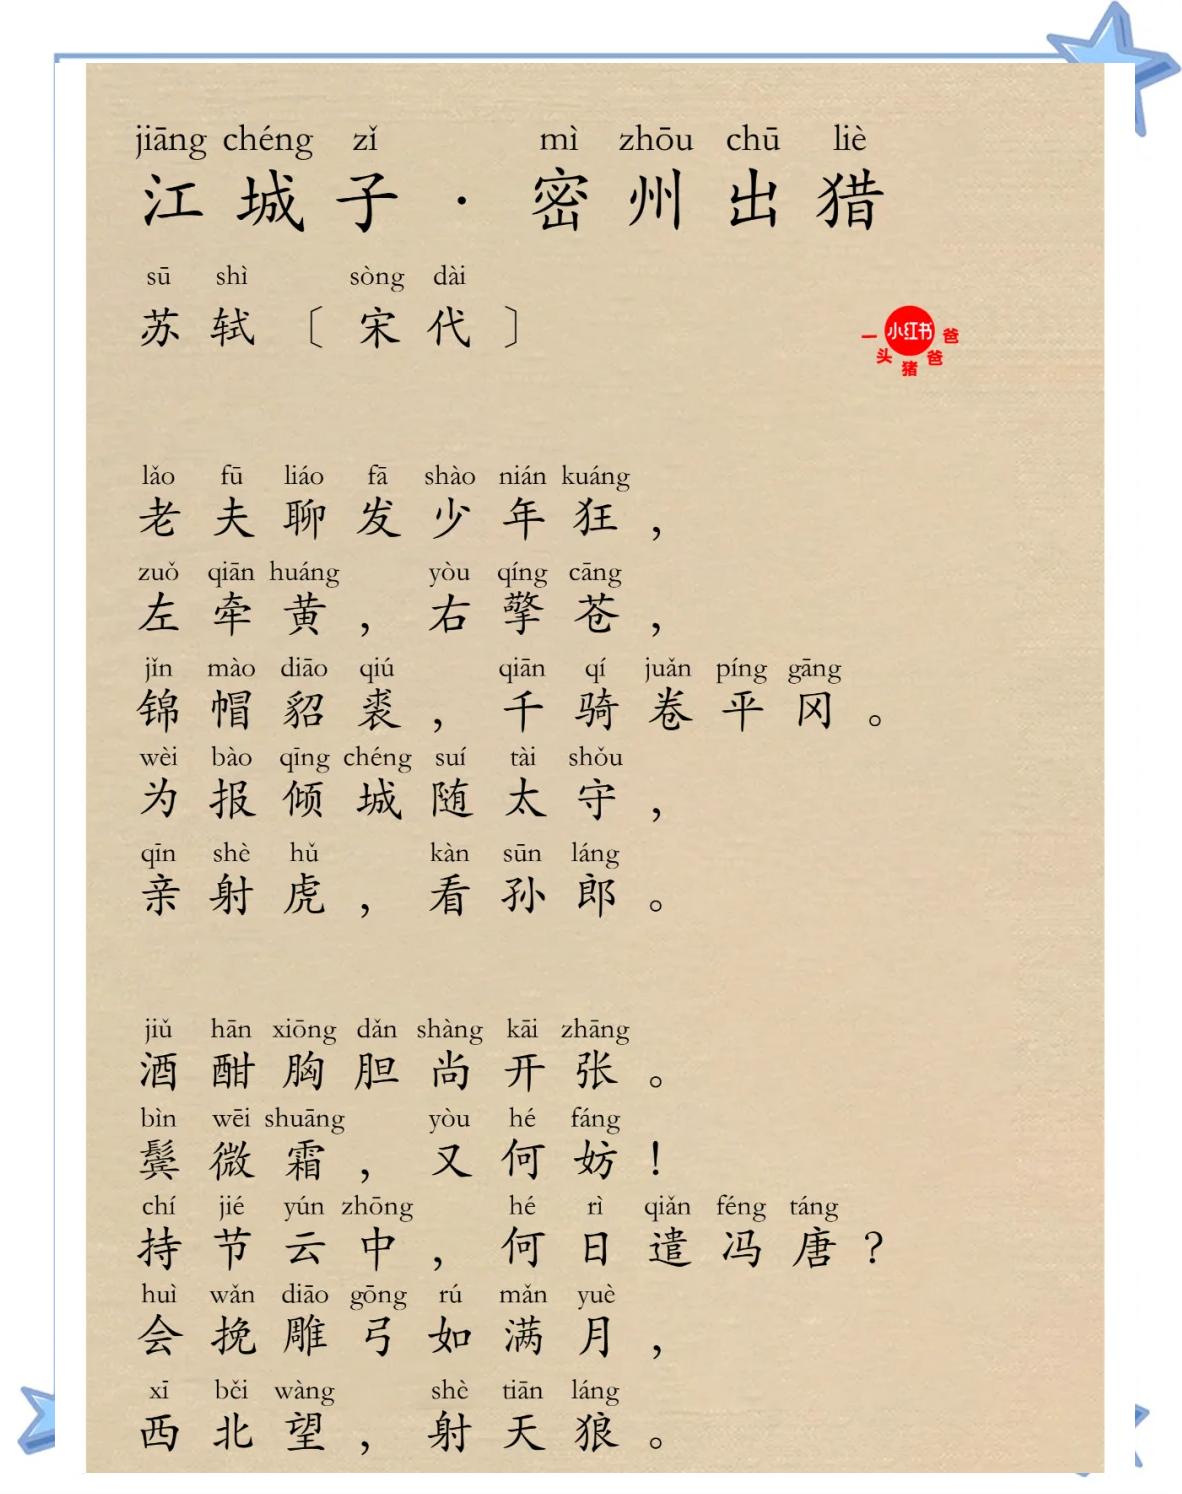 jiāng chéng zǐ mì zhōu chū liè
江城子·密州出猎
sū shì sòng dài
苏轼〔宋代〕
小红书
一头猪爸爸
lǎo fū liáo fā shào nián kuáng
老夫聊发少年狂，
zuǒ qiān huáng yòu qíng cāng
左牵黄，右擎苍，
jǐn mào diāo qiú qiān qí juǎn píng gāng
锦帽貂裘，千骑卷平冈。
wèi bào qīng chéng suí tài shǒu
为报倾城随太守，
qīn shè hǔ kàn sūn láng
亲射虎，看孙郎。
jiǔ hān xiōng dǎn shàng kāi zhāng
酒酣胸胆尚开张。
bìn wēi shuāng yòu hé fáng
鬓微霜，又何妨！
chí jié yún zhōng hé rì qiǎn féng táng
持节云中，何日遣冯唐？
huì wǎn diāo gōng rú mǎn yuè
会挽雕弓如满月，
xī běi wàng shè tiān láng
西北望，射天狼。